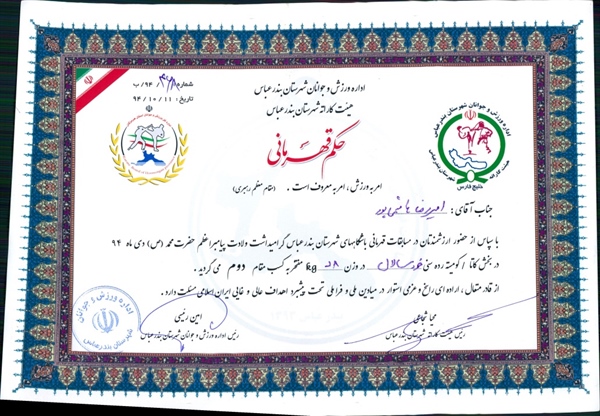 اداره ورزش و جوانان شهرستان بندرعباس
هیئت کاراته شهرستان بندرعباس
شماره: ۹۴/ب
تاریخ: ۹۴/۱۰/۱۱
حکم قهرمانی
امر به ورزش، امر به معروف است. (مقام معظم رهبری)
اداره ورزش و جوانان شهرستان بندرعباس
هیئت کاراته
خلیج فارس
جناب آقای: امیررضا هاشمی پور
با سپاس از حضور ارزشمندتان در مسابقات قهرمانی باشگاههای شهرستان بندرعباس گرامیداشت ولادت پیامبر اعظم حضرت محمد (ص) دی ماه ۹۴
در بخش کاتا / کومیته رده سنی خردسالان در وزن ۲۸- kg مفتخر به کسب مقام دوم می گردید.
از قادر متعال، اراده ای راسخ و عزمی استوار در میادین ملی و فراملی تحت پیشبرد اهداف عالی و غایی ایران اسلامی مسئلت دارد.
محیا شجاعی
رئیس هیئت کاراته شهرستان بندرعباس
امین رئیسی
رئیس اداره ورزش و جوانان شهرستان بندرعباس
اداره ورزش و جوانان
شهرستان بندرعباس